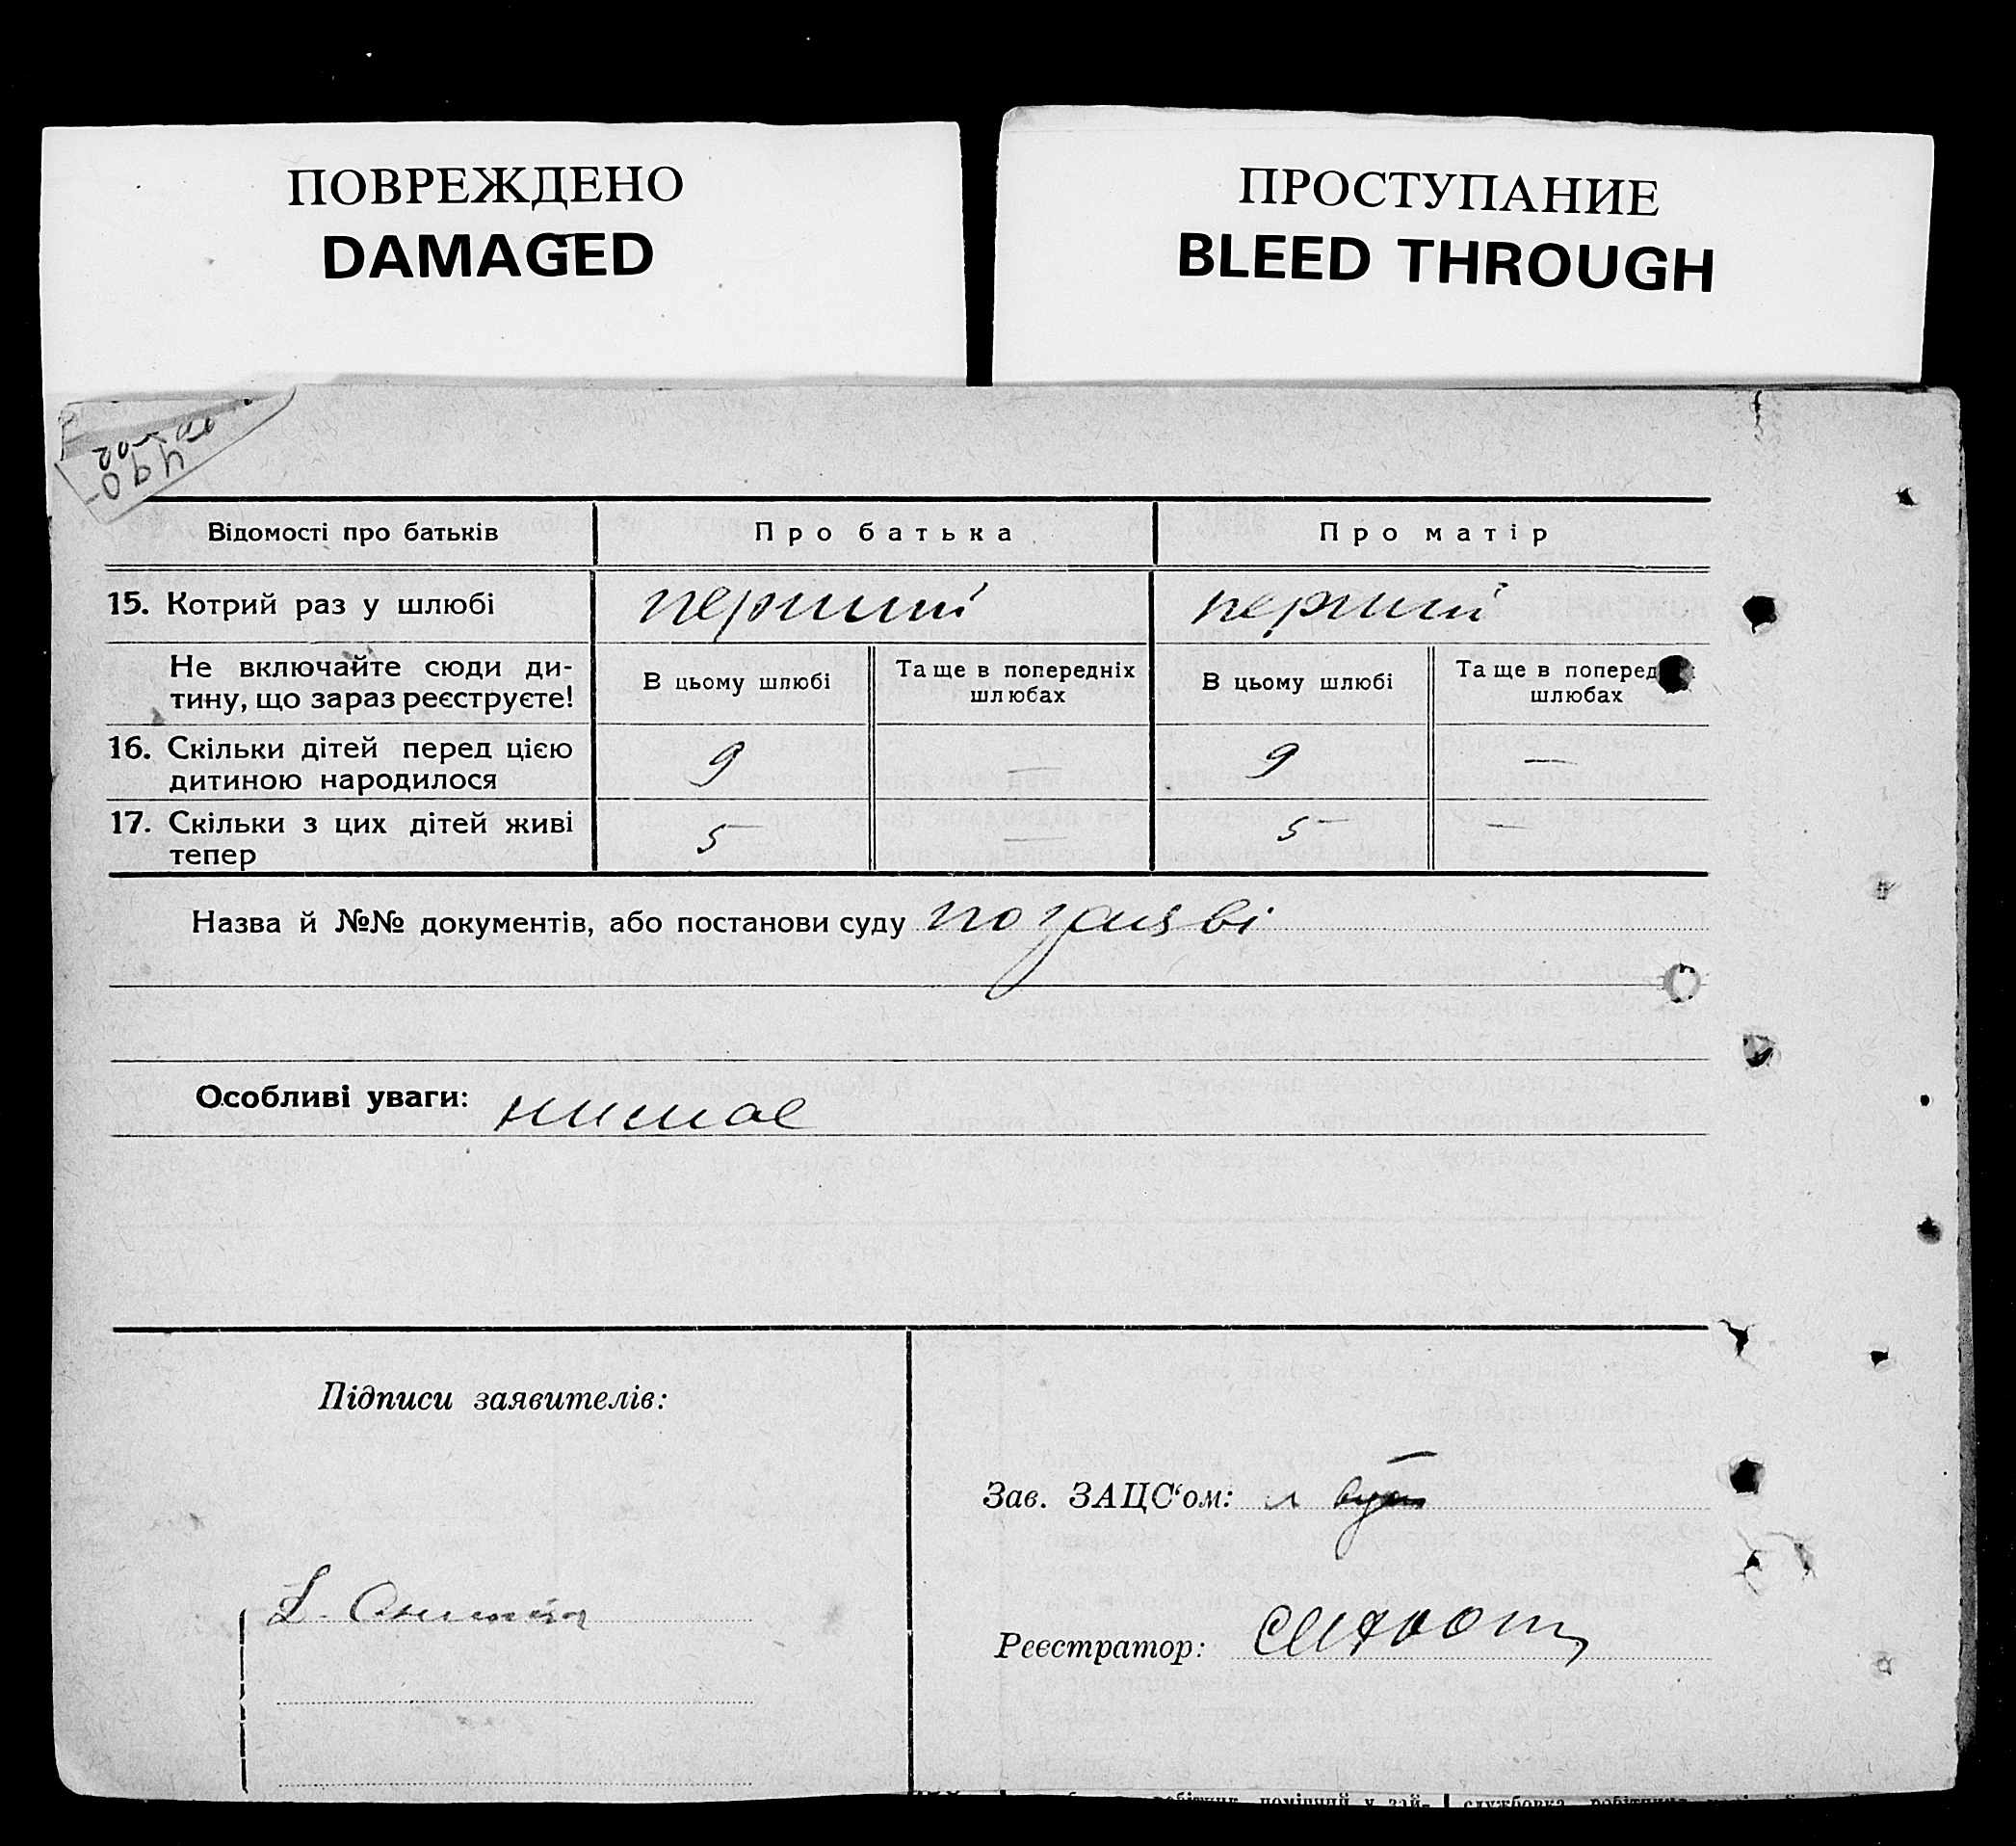 ПОВРЕЖДЕНО
DAMAGED
ПРОСТУПАНИЕ
BLEED THROUGH
490
Відомості про батьків Про батька Про матір
15. Котрий раз у шлюбі перший перший
Не включайте сюди ди-
тину, що зараз реєструєте!
В цьому шлюбі
Та ще в попередніх
шлюбах
В цьому шлюбі
Та ще в поперед
шлюбах
16. Скільки дітей перед цією
дитиною народилося
9 — 9 —
17. Скільки з цих дітей живі
тепер
5 — 5 —
Назва й №№ документів, або постанови суду по заяві
Особливі уваги: немає
Підписи заявителів:
Зав. ЗАЦС'ом:
Реєстратор: